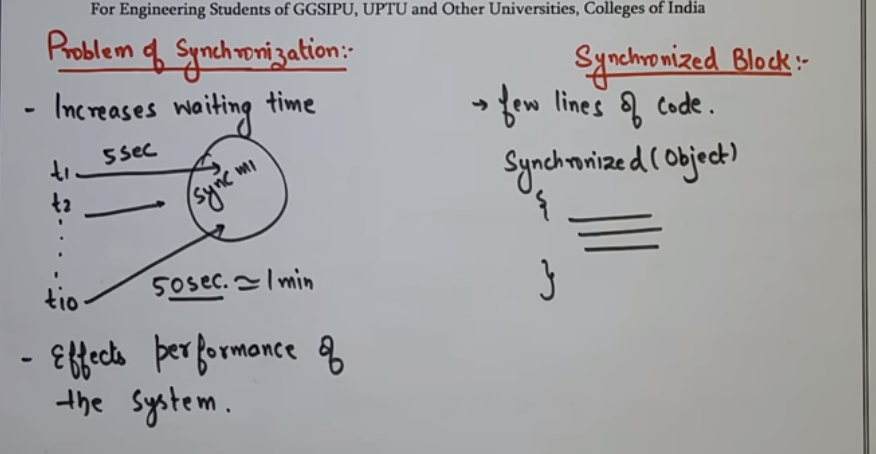 For Engineering Students of GGSIPU, UPTU and Other Universities, Colleges of India
Problem of Synchronization:-
- Increases waiting time
t1 5 sec
sync m1
t2
t10
50sec. ≃ 1 min
- Effects performance of
the system.
Synchronized Block:-
→ few lines of code.
Synchronized (Object)
{
}